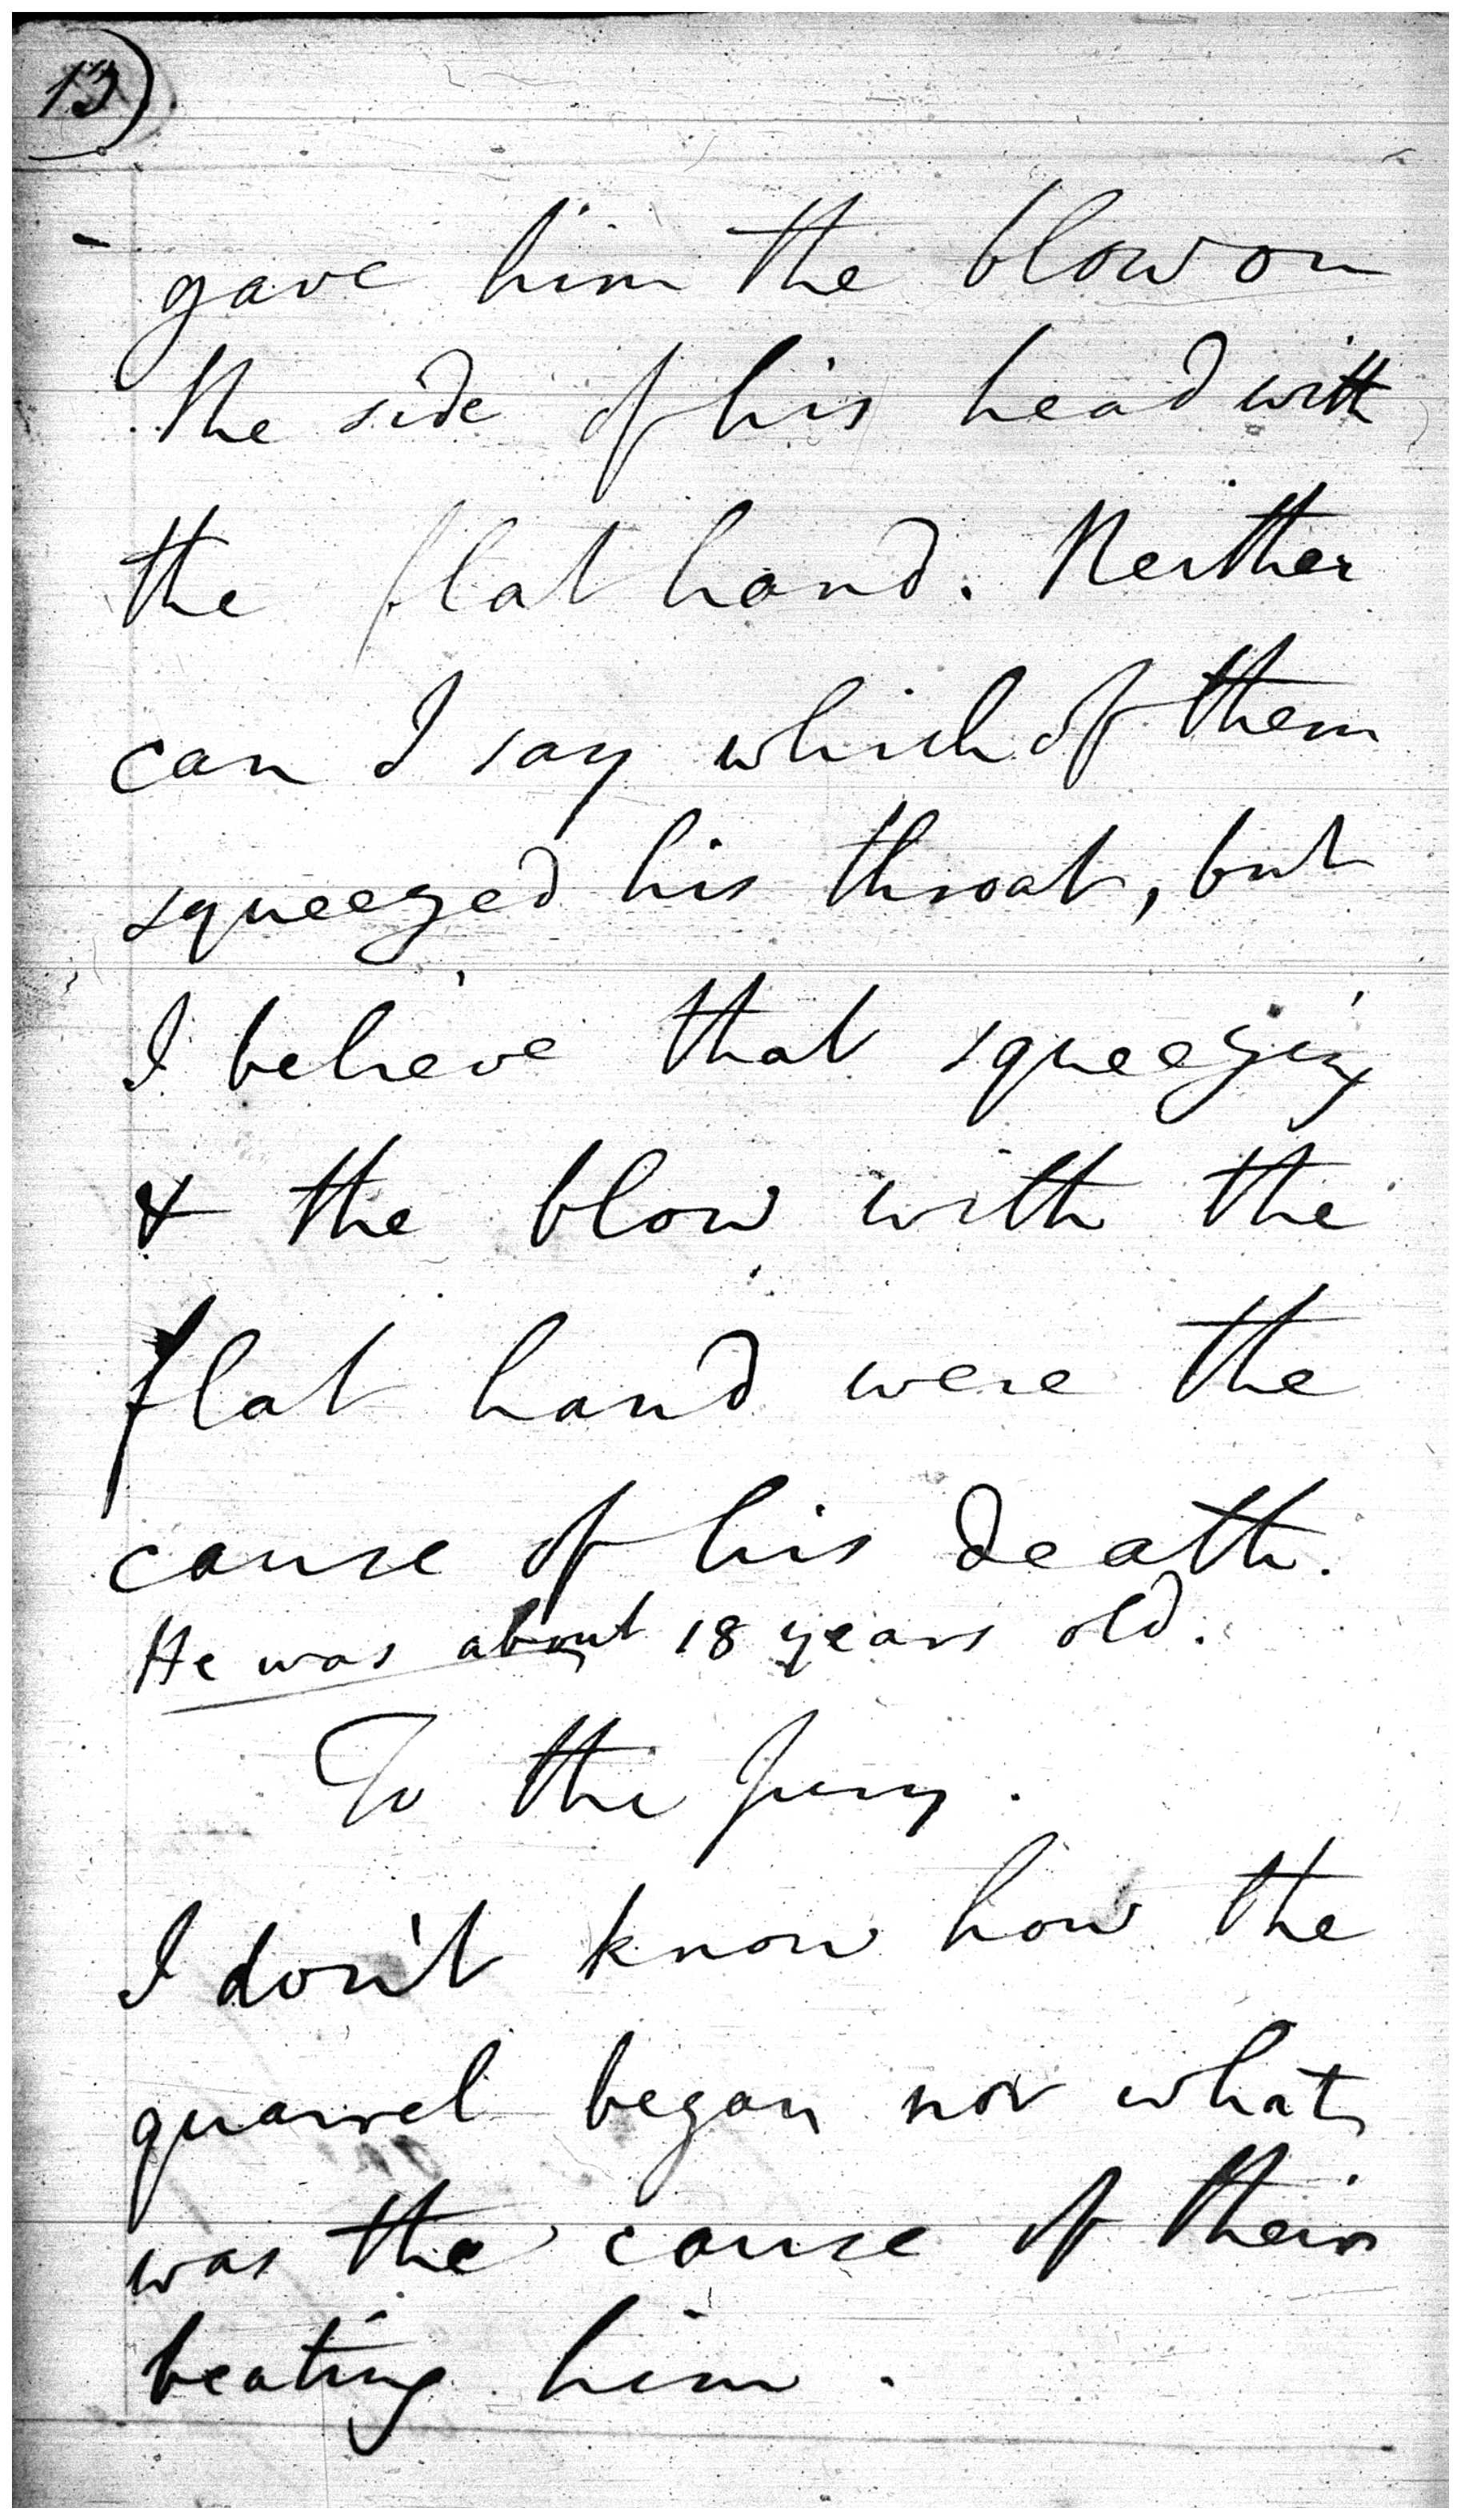 13)
gave him the blow on
the side of his head with
the flat hand. Neither
can I say which of them
squeezed his throat, but
I believe that squeezing
& the blow with the
flat hand were the
cause of his death.
He was about 18 years old.
To the Jury.
I don't know how the
quarrel began nor what
was the cause of their
beating him.